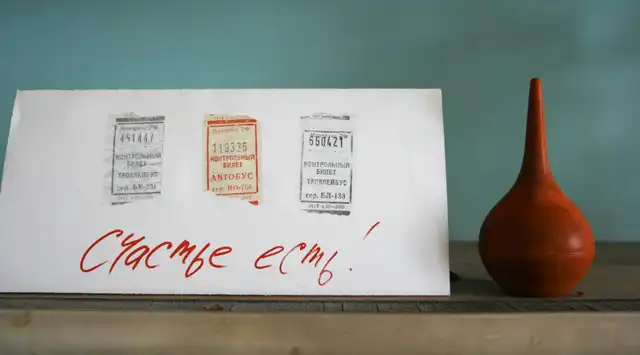 451447
КОНТРОЛЬНЫЙ
БИЛЕТ
ТРОЛЛЕЙБУС
119335
КОНТРОЛЬНЫЙ
БИЛЕТ
АВТОБУС
560421
КОНТРОЛЬНЫЙ
БИЛЕТ
ТРОЛЛЕЙБУС
сер. БЛ-133
Счастье есть!